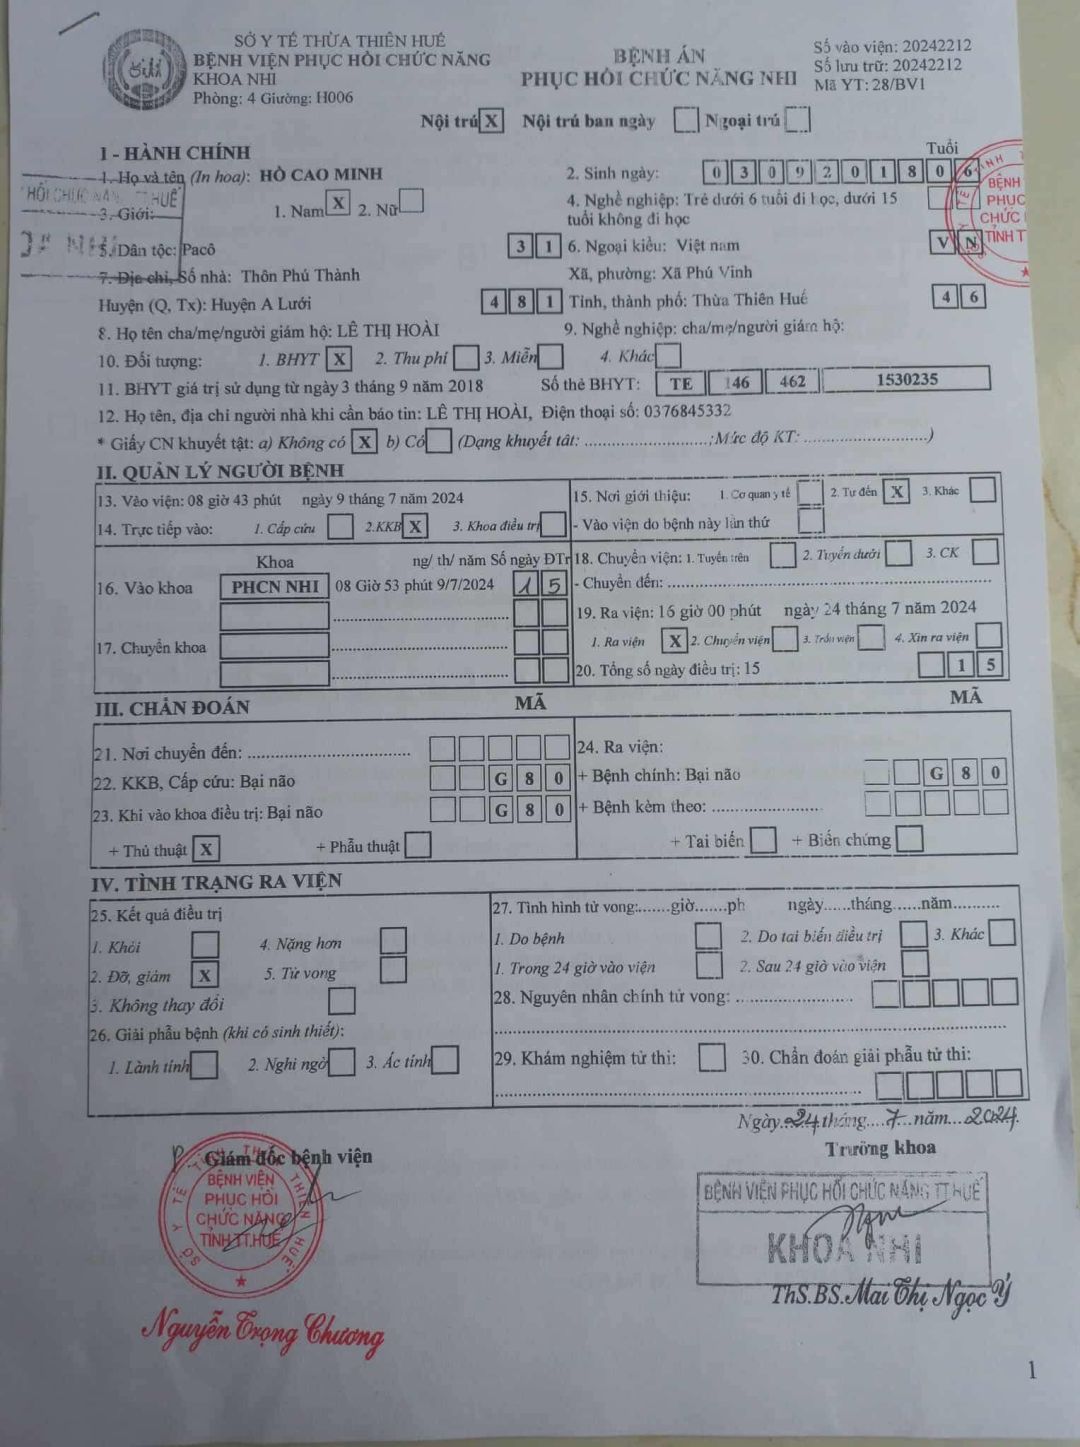 SỞ Y TẾ THỪA THIÊN HUẾ
BỆNH VIỆN PHỤC HỒI CHỨC NĂNG
KHOA NHI
Phòng: 4 Giường: H006
BỆNH ÁN
PHỤC HỒI CHỨC NĂNG NHI
Số vào viện: 20242212
Số lưu trữ: 20242212
Mã YT: 28/BV1
Nội trú X Nội trú ban ngày Ngoại trú
I - HÀNH CHÍNH
Tuổi
1. Họ và tên (In hoa): HỒ CAO MINH
2. Sinh ngày: 0 3 0 9 2 0 1 8 0 6
HỒI CHỨC NĂNG TT HUẾ
3. Giới: 1. Nam X 2. Nữ
4. Nghề nghiệp: Trẻ dưới 6 tuổi đi học, dưới 15
tuổi không đi học
BỆNH
PHỤC
CHỨC
TỈNH T
5. Dân tộc: Pacô 3 1
6. Ngoại kiều: Việt nam V N
7. Địa chỉ, Số nhà: Thôn Phú Thành
Xã, phường: Xã Phú Vinh
Huyện (Q, Tx): Huyện A Lưới 4 8 1
Tỉnh, thành phố: Thừa Thiên Huế 4 6
8. Họ tên cha/mẹ/người giám hộ: LÊ THỊ HOÀI
9. Nghề nghiệp: cha/mẹ/người giám hộ:
10. Đối tượng: 1. BHYT X 2. Thu phí 3. Miễn 4. Khác
11. BHYT giá trị sử dụng từ ngày 3 tháng 9 năm 2018 Số thẻ BHYT: TE 146 462 1530235
12. Họ tên, địa chỉ người nhà khi cần báo tin: LÊ THỊ HOÀI, Điện thoại số: 0376845332
* Giấy CN khuyết tật: a) Không có X b) Có (Dạng khuyết tât: ..........................;Mức độ KT: .........................)
II. QUẢN LÝ NGƯỜI BỆNH
13. Vào viện: 08 giờ 43 phút ngày 9 tháng 7 năm 2024
15. Nơi giới thiệu: 1. Cơ quan y tế 2. Tự đến X 3. Khác
14. Trực tiếp vào: 1. Cấp cứu 2.KKB X 3. Khoa điều trị
- Vào viện do bệnh này lần thứ
Khoa ng/ th/ năm Số ngày ĐTr
18. Chuyển viện: 1. Tuyến trên 2. Tuyến dưới 3. CK
16. Vào khoa PHCN NHI 08 Giờ 53 phút 9/7/2024 1 5
- Chuyển đến: ..........................
19. Ra viện: 16 giờ 00 phút ngày 24 tháng 7 năm 2024
17. Chuyển khoa
1. Ra viện X 2. Chuyển viện 3. Trốn viện 4. Xin ra viện
20. Tổng số ngày điều trị: 15 1 5
III. CHẨN ĐOÁN MÃ MÃ
21. Nơi chuyển đến: ..........................
24. Ra viện:
22. KKB, Cấp cứu: Bại não G 8 0
+ Bệnh chính: Bại não G 8 0
23. Khi vào khoa điều trị: Bại não G 8 0
+ Bệnh kèm theo: ....................
+ Thủ thuật X + Phẫu thuật
+ Tai biến + Biến chứng
IV. TÌNH TRẠNG RA VIỆN
25. Kết quả điều trị
27. Tình hình tử vong:.......giờ.......ph ngày......tháng......năm..........
1. Khỏi 4. Nặng hơn
1. Do bệnh 2. Do tai biến điều trị 3. Khác
2. Đỡ, giảm X 5. Tử vong
1. Trong 24 giờ vào viện 2. Sau 24 giờ vào viện
3. Không thay đổi
28. Nguyên nhân chính tử vong: ....................
26. Giải phẫu bệnh (khi có sinh thiết):
1. Lành tính 2. Nghi ngờ 3. Ác tính
29. Khám nghiệm tử thi: 30. Chẩn đoán giải phẫu tử thi:
Ngày 24 tháng 7 năm 2024.
Giám đốc bệnh viện
Trưởng khoa
SỞ Y TẾ TỈNH THỪA THIÊN HUẾ
BỆNH VIỆN
PHỤC HỒI
CHỨC NĂNG
TỈNH TT.HUẾ
BỆNH VIỆN PHỤC HỒI CHỨC NĂNG TT HUẾ
KHOA NHI
ThS.BS. Mai Thị Ngọc Ý
Nguyễn Trọng Chương
1